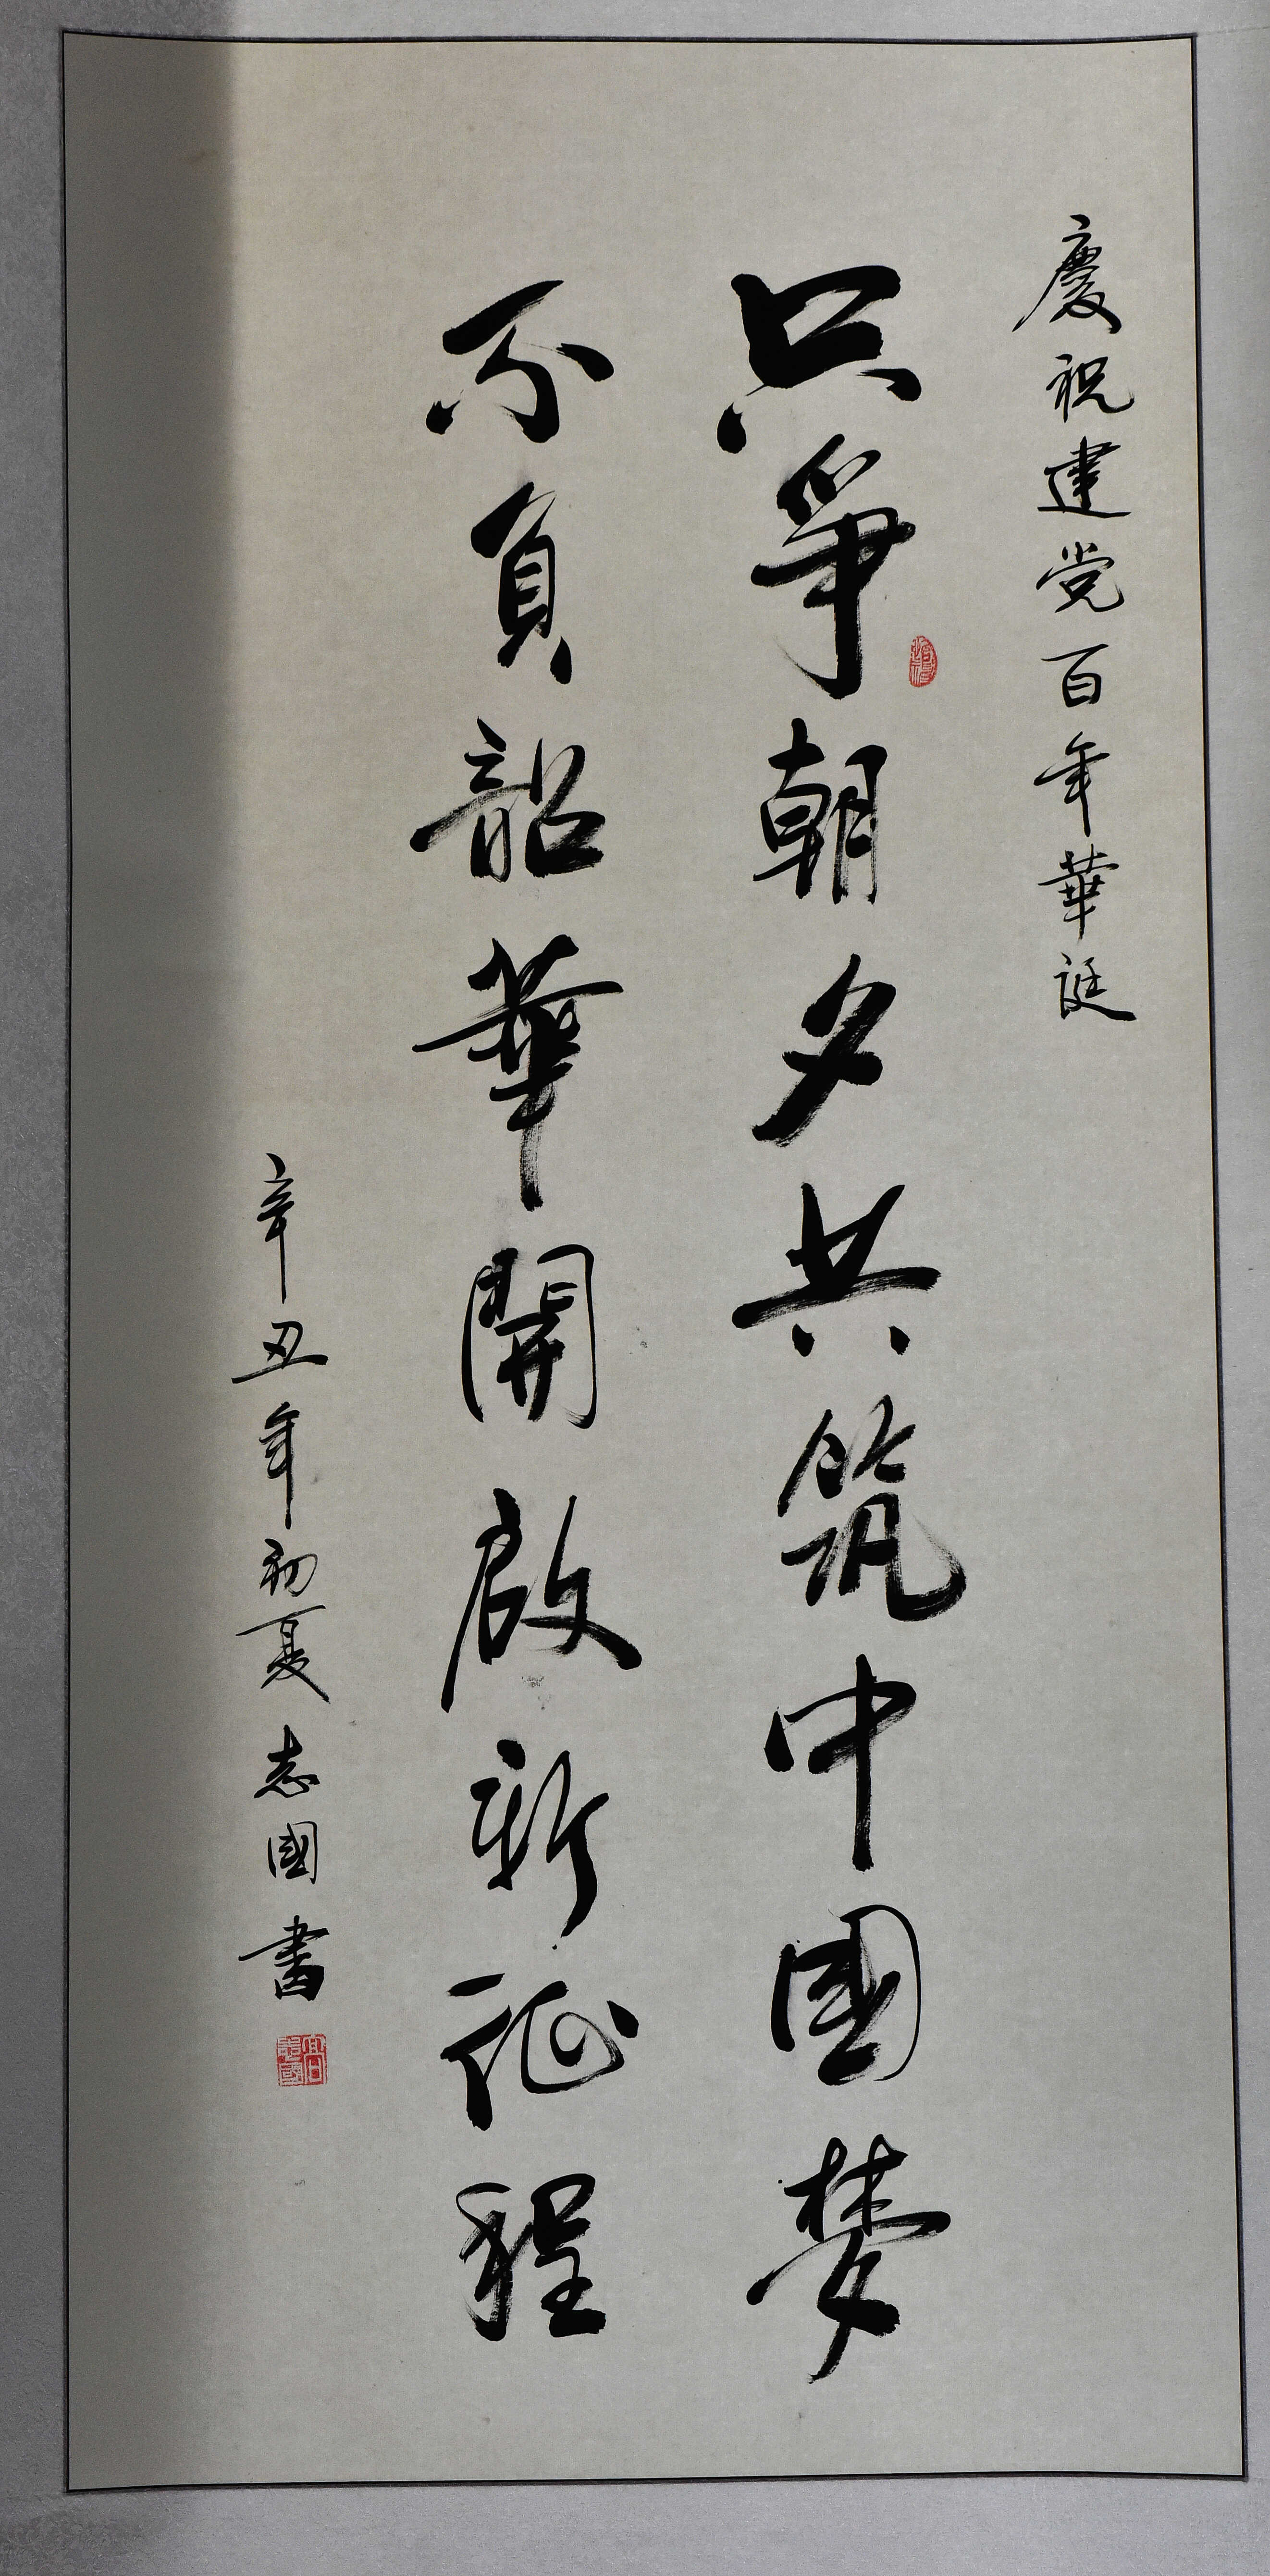 慶祝建党百年華誕
只爭朝夕共筑中國夢
不負韶華開啟新征程
辛丑年初夏志國書